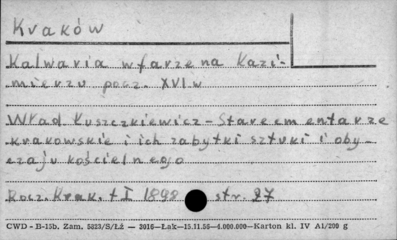 Kraków
Kalwaria w farze na Kazi-
mierzu pocz. XVI w
Wład Łuszczkiewicz - Stare cmentarze
krakowskie i ich zabytki sztuki i oby-
czaju kościelnego
Rocz. Krak. t I 1898 str. 27
CWD - B-15b. Zam. 5823/S/Łż — 3016—Łak—15.11.56—4.000.000—Karton kl. IV A1/200 g